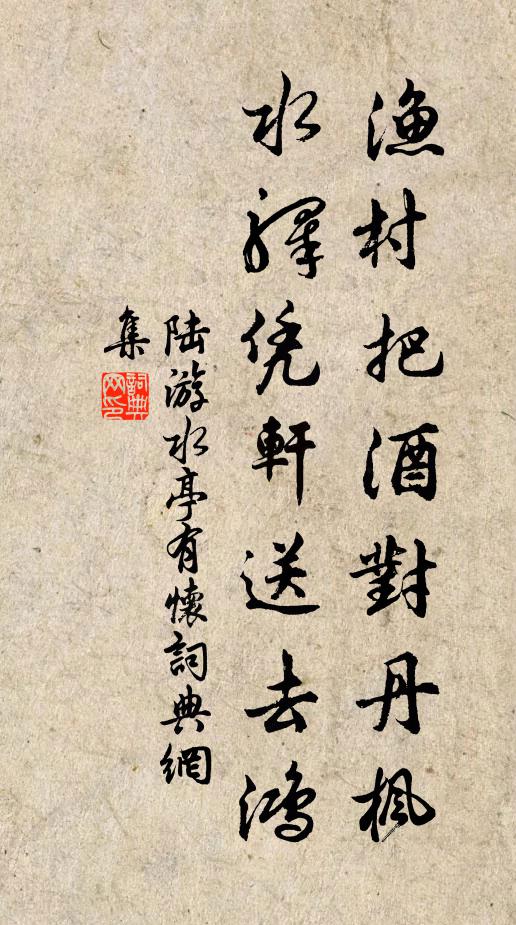 渔村把酒對丹楓
水驛凭軒送去鴻
陆游水亭有懷詞典網
集
詞典网印